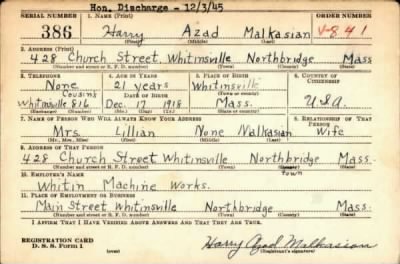 Hon. Discharge - 12/3/45
SERIAL NUMBER 1. NAME (Print) ORDER NUMBER
386 Harry Azad Malkasian V-841
(First) (Middle) (Last)
2. ADDRESS (Print)
428 Church Street, Whitinsville Northbridge Mass.
(Number and street or R. F. D. number) (Town) (County) (State)
3. TELEPHONE 4. AGE IN YEARS 5. PLACE OF BIRTH 6. COUNTRY OF CITIZENSHIP
None 21 years Whitinsville
Cousins DATE OF BIRTH (Town or county)
Whitinsville 816 Dec. 17 1918 Mass. U.S.A.
(Exchange) (Number) (Mo.) (Day) (Yr.) (State or country)
7. NAME OF PERSON WHO WILL ALWAYS KNOW YOUR ADDRESS 8. RELATIONSHIP OF THAT PERSON
Mrs. Lillian None Malkasian Wife
(Mr., Mrs., Miss) (First) (Middle) (Last)
9. ADDRESS OF THAT PERSON
428 Church Street Whitinsville Northbridge Mass.
(Number and street or R. F. D. number) (Town) (County) (State)
10. EMPLOYER'S NAME Town
Whitin Machine Works.
11. PLACE OF EMPLOYMENT OR BUSINESS
Main Street Whitinsville Northbridge Mass.
(Number and street or R. F. D. number) (Town) (County) (State)
I AFFIRM THAT I HAVE VERIFIED ABOVE ANSWERS AND THAT THEY ARE TRUE.
REGISTRATION CARD
D. S. S. FORM 1 (over) Harry Azad Malkasian
(Registrant's signature)